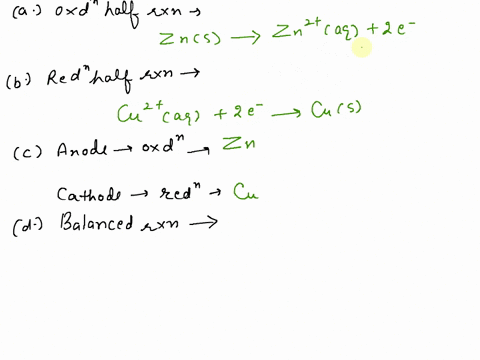 (a.) oxdⁿ half rxn →
Zn(s) → Zn²⁺(aq) + 2e⁻
(b) Redⁿ half rxn →
Cu²⁺(aq) + 2e⁻ → Cu(s)
(c) Anode → oxdⁿ → Zn
Cathode → redⁿ → Cu
(d.) Balanced rxn →